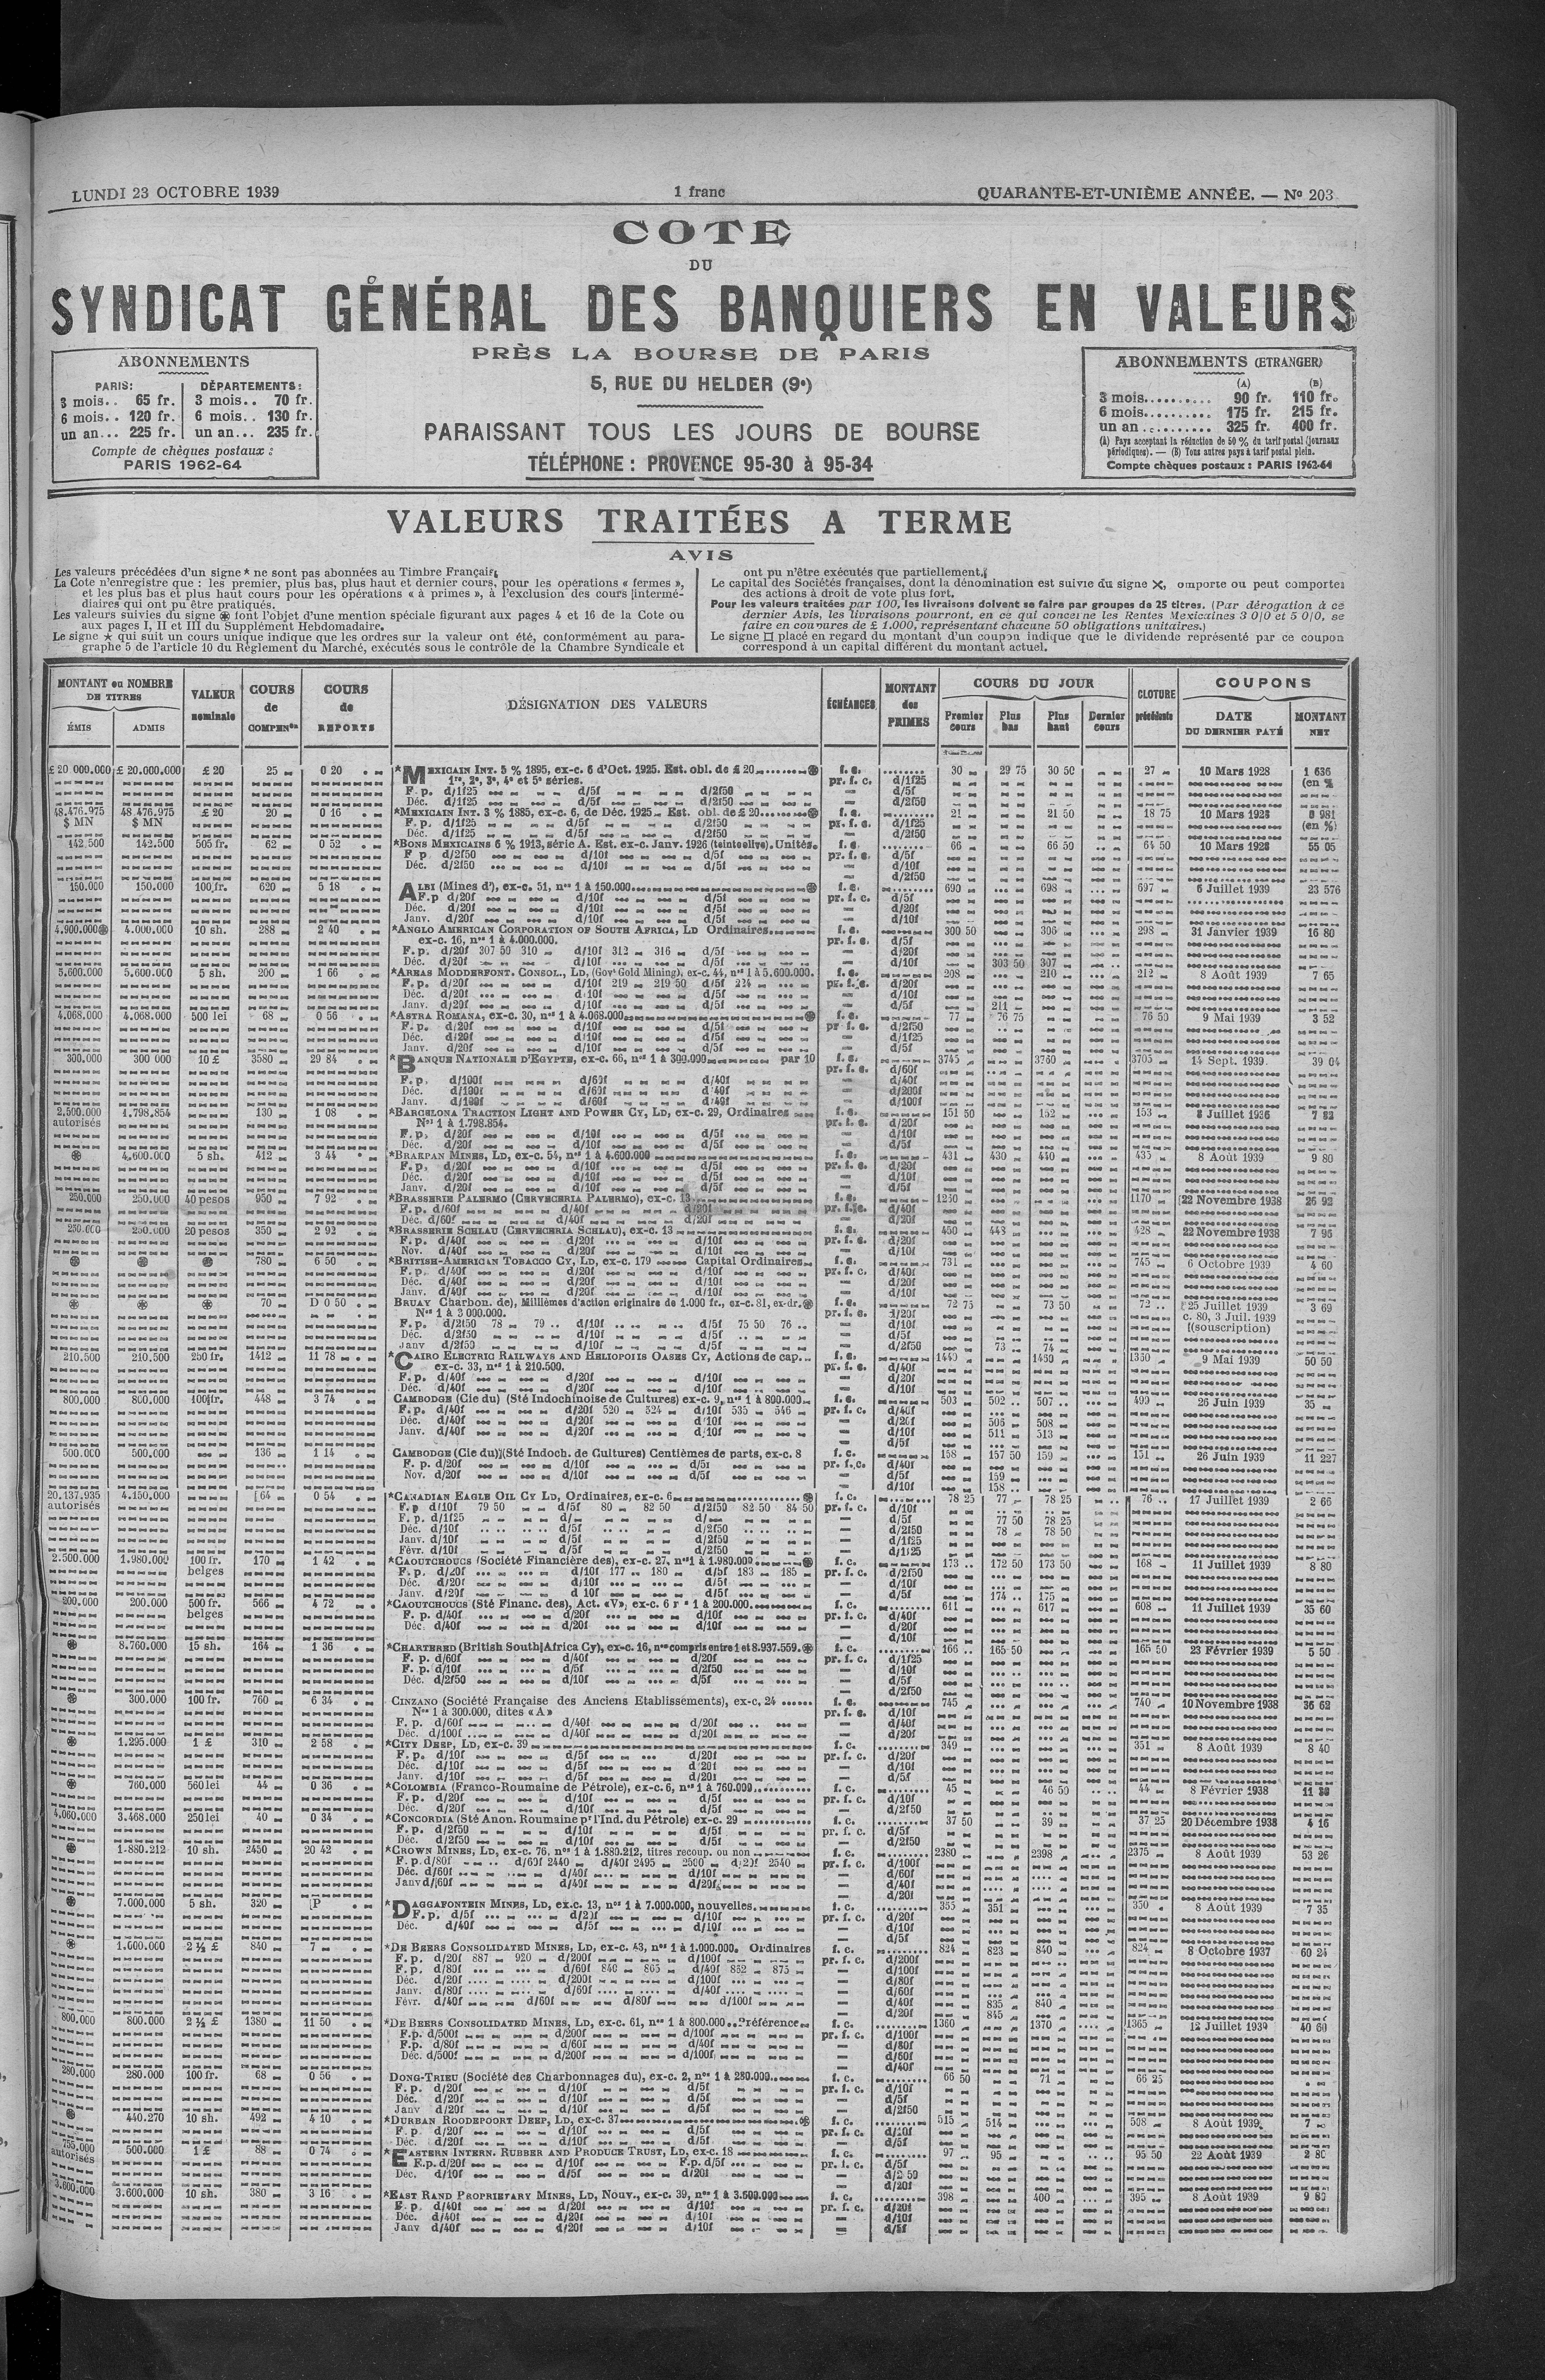 LUNDI 23 OCTOBRE 1939
1 franc
QUARANTE-ET-UNIÈME ANNÉE. — No 203
COTE
DU
SYNDICAT GÉNÉRAL DES BANQUIERS EN VALEURS
PRÈS LA BOURSE DE PARIS
5, RUE DU HELDER (9e)
PARAISSANT TOUS LES JOURS DE BOURSE
TÉLÉPHONE : PROVENCE 95-30 à 95-34
ABONNEMENTS
PARIS: DÉPARTEMENTS:
3 mois.. 65 fr. 3 mois.. 70 fr.
6 mois.. 120 fr. 6 mois.. 130 fr.
un an... 225 fr. un an... 235 fr.
Compte de chèques postaux :
PARIS 1962-64
ABONNEMENTS (ETRANGER)
(A) (B)
3 mois.......... 90 fr. 110 fr.
6 mois.......... 175 fr. 215 fr.
un an .......... 325 fr. 400 fr.
(A) Pays acceptant la réduction de 50 % du tarif postal (journaux
périodiques). — (B) Tous autres pays à tarif postal plein.
Compte chèques postaux : PARIS 1962-64
VALEURS TRAITÉES A TERME
AVIS
Les valeurs précédées d'un signe * ne sont pas abonnées au Timbre Français
La Cote n'enregistre que : les premier, plus bas, plus haut et dernier cours, pour les opérations « fermes »,
et les plus bas et plus haut cours pour les opérations « à primes », à l'exclusion des cours intermé-
diaires qui ont pu être pratiqués.
Les valeurs suivies du signe ⊛ font l'objet d'une mention spéciale figurant aux pages 4 et 16 de la Cote ou
aux pages I, II et III du Supplément Hebdomadaire.
Le signe ★ qui suit un cours unique indique que les ordres sur la valeur ont été, conformément au para-
graphe 5 de l'article 10 du Règlement du Marché, exécutés sous le contrôle de la Chambre Syndicale et
ont pu n'être exécutés que partiellement.
Le capital des Sociétés françaises, dont la dénomination est suivie du signe ✕, comporte ou peut comporter
des actions à droit de vote plus fort.
Pour les valeurs traitées par 100, les livraisons doivent se faire par groupes de 25 titres. (Par dérogation à ce
dernier Avis, les livraisons pourront, en ce qui concerne les Rentes Mexicaines 3 0/0 et 5 0/0, se
faire en coupures de £ 1.000, représentant chacune 50 obligations unitaires.)
Le signe □ placé en regard du montant d'un coupon indique que le dividende représenté par ce coupon
correspond à un capital différent du montant actuel.
MONTANT ou NOMBRE DE TITRES
ÉMIS ADMIS
VALEUR nominale
COURS de COMPENon
COURS de REPORTS
DÉSIGNATION DES VALEURS
ÉCHÉANCES
MONTANT des PRIMES
COURS DU JOUR
Premier cours Plus bas Plus haut Dernier cours
CLOTURE précédente
COUPONS
DATE DU DERNIER PAYÉ MONTANT NET
£ 20 000.000 £ 20.000.000 £ 20 25 0 20 *MEXICAIN INT. 5 % 1895, ex-c. 6 d'Oct. 1925. Est. obl. de £ 20 ⊛ f. c. 30 29 75 30 50 27 10 Mars 1928 1 636
1re, 2e, 3e, 4e et 5e séries. pr. f. c. d/1f25 (en %
F. p. d/1f25 d/5f d/2f50 d/5f
Déc. d/1f25 d/5f d/2f50 d/2f50
48.476.975 48 476.975 £ 20 20 0 16 *MEXICAIN INT. 3 % 1885, ex-c. 6, de Déc. 1925 Est. obl. de £ 20 ⊛ f. c. 21 21 50 18 75 10 Mars 1928 0 981
$ MN $ MN F. p. d/1f25 d/5f d/2f50 pr. f. c. d/1f25 (en %)
Déc. d/1f25 d/5f d/2f50 d/2f50
142.500 142.500 505 fr. 62 0 52 *BONS MEXICAINS 6 % 1913, série A. Est. ex-c. Janv. 1926 (teinte olive). Unités. f. c. 66 66 50 64 50 10 Mars 1928 55 05
F. p. d/2f50 d/10f d/5f pr. f. c. d/5f
Déc. d/2f50 d/10f d/5f d/10f
d/2f50
150.000 150.000 100 fr. 620 5 18 ALBI (Mines d'), ex-c. 51, nos 1 à 150.000 ⊛ f. c. 690 698 697 6 Juillet 1939 23 576
F.p d/20f d/10f d/5f pr. f. c. d/5f
Déc. d/20f d/10f d/5f d/20f
Janv. d/20f d/10f d/5f d/10f
4.900.000⊛ 4.000.000 10 sh. 288 2 40 *ANGLO AMERICAN CORPORATION OF SOUTH AFRICA, LD Ordinaires f. c. 300 50 306 298 31 Janvier 1939 16 80
ex-c. 16, nos 1 à 4.000.000. pr. f. c. d/5f
F. p. d/20f 307 50 310 d/10f 312 316 d/5f d/20f
Déc. d/20f d/10f d/5f d/10f 303 50 307
5.600.000 5.600.000 5 sh. 200 1 66 *AREAS MODDERFONT. CONSOL., LD, (Govt Gold Mining), ex-c. 44, nos 1 à 5.600.000. f. c. 208 210 212 8 Août 1939 7 65
F. p. d/20f d/10f 219 219 50 d/5f 224 pr. f. c. d/20f
Déc. d/20f d/10f d/5f d/10f
Janv. d/20f d/10f d/5f d/5f 211
4.068.000 4.068.000 500 lei 68 0 56 *ASTRA ROMANA, ex-c. 30, nos 1 à 4.068.000 ⊛ f. c. 77 76 75 76 50 9 Mai 1939 3 52
F. p. d/20f d/10f d/5f pr f. c. d/2f50
Déc. d/20f d/10f d/5f d/1f25
Janv. d/20f d/10f d/5f d/5f
300.000 300 000 10 £ 3580 29 84 *BANQUE NATIONALE D'EGYPTE, ex-c. 66, nos 1 à 300.000 par 10 f. c. 3745 3760 3705 14 Sept. 1939 39 04
pr. f. c. d/60f
F. p. d/100f d/60f d/40f d/40f
Déc. d/100f d/60f d/40f d/200f
Janv. d/100f d/60f d/40f d/100f
2.500.000 1.798.854 130 1 08 *BARCELONA TRACTION LIGHT AND POWER CY, LD, ex-c. 29, Ordinaires f. c. 151 50 152 153 8 Juillet 1936 7 82
autorisés Nos 1 à 1.798.854. pr. f. c. d/20f
F. p. d/20f d/10f d/5f d/10f
Déc. d/20f d/10f d/5f d/5f
⊛ 4.600.000 5 sh. 412 3 44 *BRAKPAN MINES, LD, ex-c. 54, nos 1 à 4.600.000 f. c. 431 430 440 435 8 Août 1939 9 80
F. p. d/20f d/10f d/5f pr. f. c. d/20f
Déc. d/20f d/10f d/5f d/10f
Janv. d/20f d/10f d/5f d/5f
250.000 250.000 40 pesos 950 7 92 *BRASSERIE PALERMO (CERVECERIA PALERMO), ex-c. 13 f. c. 1230 1170 22 Novembre 1938 26 92
F. p. d/60f d/40f d/20f pr. f. c. d/40f
Déc. d/60f d/40f d/20f d/20f
250.000 250.000 20 pesos 350 2 92 *BRASSERIE SCHLAU (CERVECERIA SCHLAU), ex-c. 13 f. c. 450 448 428 22 Novembre 1938 7 95
F. p. d/40f d/20f d/10f pr. f. c. d/20f
Nov. d/40f d/20f d/10f d/10f
⊛ ⊛ ⊛ 780 6 50 *BRITISH-AMERICAN TOBACCO CY, LD, ex-c. 179 Capital Ordinaires f. c. 731 745 6 Octobre 1939 4 60
F. p. d/40f d/20f d/10f pr. f. c. d/40f
Déc. d/40f d/20f d/10f d/20f
Janv. d/40f d/20f d/10f d/10f
⊛ ⊛ ⊛ 70 D 0 50 BRUAY Charbon. de), Millièmes d'action originaire de 1.000 fr., ex-c. 81, ex-dr. ⊛ f. c. 72 75 73 50 72 25 Juillet 1939 3 69
Nos 1 à 3 000.000. pr. f. c. d/20f c. 80, 3 Juil. 1939
F. p. d/2f50 78 79 d/10f d/5f 75 50 76 d/10f (souscription)
Déc. d/2f50 d/10f d/5f d/5f
Janv d/2f50 d/10f d/5f d/2f50 73 74
210.500 210.500 250 fr. 1412 11 78 *CAIRO ELECTRIC RAILWAYS AND HELIOPOLIS OASES CY, Actions de cap... f. c. 1440 1450 1350 9 Mai 1939 50 50
ex-c. 33, nos 1 à 210.500. pr. f. c. d/40f
F. p. d/40f d/20f d/10f d/20f
Déc. d/40f d/20f d/10f d/10f
800.000 800.000 100 fr. 448 3 74 CAMBODGE (Cie du) (Sté Indochinoise de Cultures) ex-c. 9, nos 1 à 800.000 f. c. 503 502 507 499 26 Juin 1939 35
F. p. d/40f d/20f 520 524 d/10f 535 546 pr. f. c. d/40f
Déc. d/40f d/20f d/10f d/20f 506 508
Janv. d/40f d/20f d/10f d/10f 511 513
d/5f
500.000 500.000 136 1 14 CAMBODGE (Cie du) (Sté Indoch. de Cultures) Centièmes de parts, ex-c. 8 f. c. 158 157 50 159 151 26 Juin 1939 11 227
F. p. d/20f d/10f d/5f pr. f. c. d/40f
Nov. d/20f d/10f d/5f d/5f 159
d/10f 158
20.137.935 4.150.000 64 0 54 *CANADIAN EAGLE OIL CY LD, Ordinaires, ex-c. 6 ⊛ f. c. 78 25 77 78 25 76 17 Juillet 1939 2 66
autorisés F. p d/10f 79 50 d/5f 80 82 50 d/2f50 82 50 84 50 pr. f. c. d/10f
F. p. d/1f25 d/ d/ d/5f 77 50 78 25
Déc. d/10f d/5f d/2f50 d/2f50 78 78 50
Janv. d/10f d/5f d/2f50 d/1f25
Févr. d/10f d/5f d/2f50 d/1f25
2.500.000 1.980.000 100 fr. 170 1 42 *CAOUTCHOUCS (Société Financière des), ex-c. 27, nos 1 à 1.980.000 ⊛ f. c. 173 172 50 173 50 168 11 Juillet 1939 8 80
belges F. p. d/20f d/10f 177 180 d/5f 183 185 pr. f. c. d/2f50
Déc. d/20f d/10f d/5f d/10f
Janv. d/20f d 10f d/5f d/5f 174 175
200.000 200.000 500 fr. 566 4 72 *CAOUTCHOUCS (Sté Financ. des), Act. «V», ex-c. 6 1 à 200.000 f. c. 611 617 608 11 Juillet 1939 35 60
belges F. p. d/40f d/20f d/10f pr. f. c. d/40f
Déc. d/40f d/20f d/10f d/20f
d/10f
⊛ 8.760.000 15 sh. 164 1 36 *CHARTERED (British South Africa Cy), ex-c. 16, nos compris entre 1 et 8.937.559. ⊛ f. c. 166 165 50 165 50 23 Février 1939 5 50
F. p. d/60f d/40f d/20f pr. f. c. d/1f25
F. p. d/10f d/5f d/2f50 d/10f
Déc. d/2f50 d/10f d/5f d/5f
d/2f50
⊛ 300.000 100 fr. 760 6 34 CINZANO (Société Française des Anciens Etablissements), ex-c, 24 f. c. 745 740 10 Novembre 1938 36 62
Nos 1 à 300.000, dites «A» pr. f. c. d/10f
F. p. d/60f d/40f d/20f d/40f
Déc. d/100f d/40f d/20f d/20f
⊛ 1.295.000 1 £ 310 2 58 *CITY DEEP, LD, ex-c. 39 f. c. 349 351 8 Août 1939 8 40
F. p. d/10f d/5f d/20f pr. f. c. d/20f
Déc. d/10f d/5f d/20f d/10f
Janv. d/10f d/5f d/20f d/5f
⊛ 760.000 560 lei 44 0 36 *COLOMBIA (Franco-Roumaine de Pétrole), ex-c. 6, nos 1 à 760.000 f. c. 45 46 50 44 8 Février 1938
F. p. d/20f d/10f d/5f pr. f. c. d/10f
Déc. d/20f d/10f d/5f d/2f50
4.060.000 3.468.000 250 lei 40 0 34 *CONCORDIA (Sté Anon. Roumaine pr l'Ind. du Pétrole) ex-c. 29 f. c. 37 50 39 37 25 20 Décembre 1938 4 16
F. p. d/2f50 d/10f d/5f pr. f. c. d/5f
Déc. d/2f50 d/10f d/5f d/2f50
⊛ 1.880.212 10 sh. 2450 20 42 *CROWN MINES, LD, ex-c. 76, nos 1 à 1.880.212, titres recoup. ou non f. c. 2380 2398 2375 8 Août 1939 53 26
F. p. d/80f d/60f 2440 d/40f 2495 2500 d/20f 2540 pr. f. c. d/100f
Déc. d/60f d/40f d/10f d/60f
Janv d/60f d/40f d/20f d/40f
d/20f
⊛ 7.000.000 5 sh. 320 P *DAGGAFONTEIN MINES, LD, ex.c. 13, nos 1 à 7.000.000, nouvelles. f. c. 355 351 350 8 Août 1939 7 35
F. p. d/5f d/20f d/10f pr. f. c. d/20f
Déc. d/40f d/5f d/10f d/10f
d/5f
⊛ 1.000.000 2 ½ £ 840 7 *DE BEERS CONSOLIDATED MINES, LD, ex-c. 43, nos 1 à 1.000.000. Ordinaires f. c. 824 823 840 824 8 Octobre 1937 60 24
F. p. d/20f 887 920 d/200f d/100f pr. f. c. d/200f
F. p. d/80f d/60f 840 865 d/40f 852 875 d/100f
Déc. d/20f d/200f d/100f d/80f
Janv. d/80f d/60f d/40f d/60f
Févr. d/40f d/60f d/80f d/100f d/40f 835 840
d/20f 845
800.000 800.000 2 ½ £ 1380 11 50 *DE BEERS CONSOLIDATED MINES, LD, ex-c. 61, nos 1 à 800.000.. Préférence f. c. 1360 1370 1365 12 Juillet 1939 40 60
F.p. d/500f d/200f d/100f pr. f. c. d/100f
F.p. d/80f d/60f d/40f d/80f
Déc. d/500f d/200f d/100f d/60f
d/40f
280.000 280.000 100 fr. 68 0 56 DONG-TRIEU (Société des Charbonnages du), ex-c. 2, nos 1 à 280.000 f. c. 66 50 71 66 25
F. p. d/20f d/10f d/5f pr. f. c. d/10f
Déc. d/20f d/10f d/5f d/5f
Janv d/20f d/10f d/5f d/2f50
⊛ 440.270 10 sh. 492 4 10 *DURBAN ROODEPOORT DEEP, LD, ex-c. 37 ⊛ f. c. 515 514 508 8 Août 1939 7
F. p. d/20f d/10f d/5f pr. f. c. d/10f
Déc. d/20f d/10f d/5f d/5f
755.000 500.000 1 £ 88 0 74 *EASTERN INTERN. RUBBER AND PRODUCE TRUST, LD, ex-c. 18 f. c. 97 95 95 50 22 Août 1939 2 80
autorisés F.p. d/20f d/10f F.p. d/5f pr. f. c. d/5f
Déc. d/10f d/5f d/20f d/2 50
d/20f
3.600.000 3.600.000 10 sh. 380 3 16 *EAST RAND PROPRIETARY MINES, LD, Nouv., ex-c. 39, nos 1 à 3.600.000 f. c. 398 400 395 8 Août 1939 9 80
F. p. d/40f d/20f d/10f pr. f. c. d/20f
Déc. d/40f d/20f d/10f d/10f
Janv d/40f d/20f d/10f d/5f